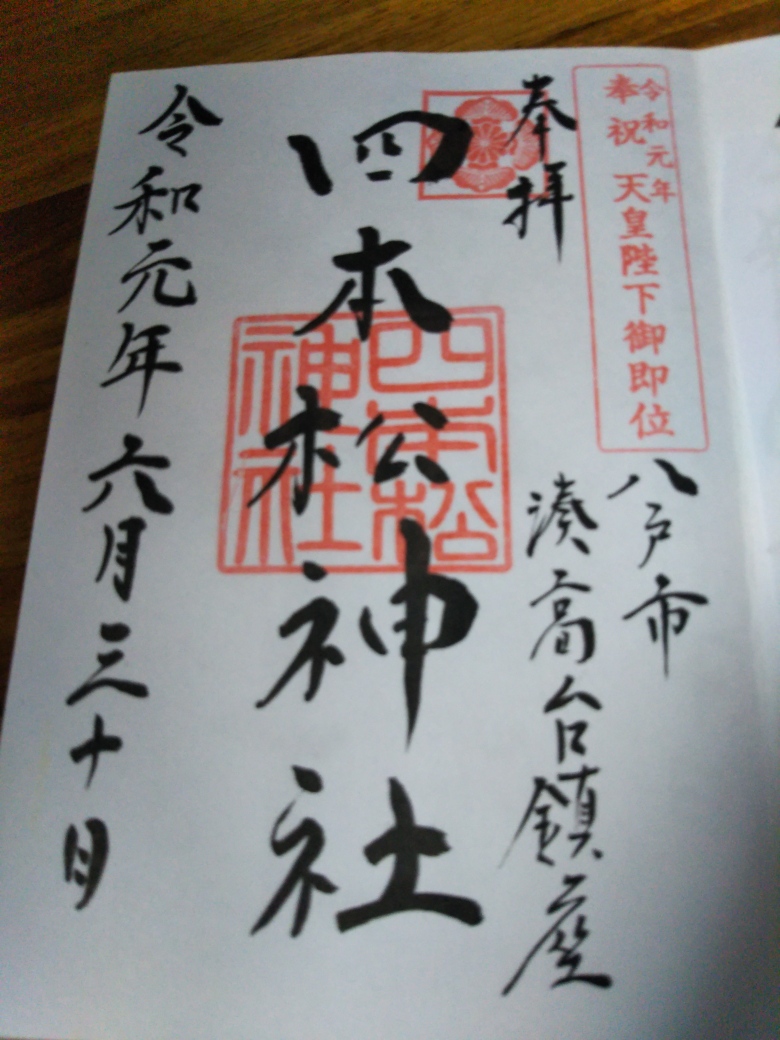 令和元年
奉祝 天皇陛下御即位
八戸市
湊高台鎮座
奉拝
四本松神社
四本松
神社
令和元年六月三十日